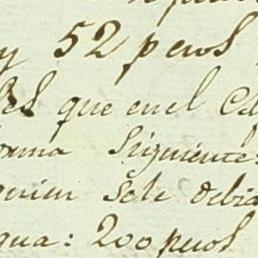 y 52 pesos
que en el
orma siguiente:
quien se le debia
gua: 200 pesos